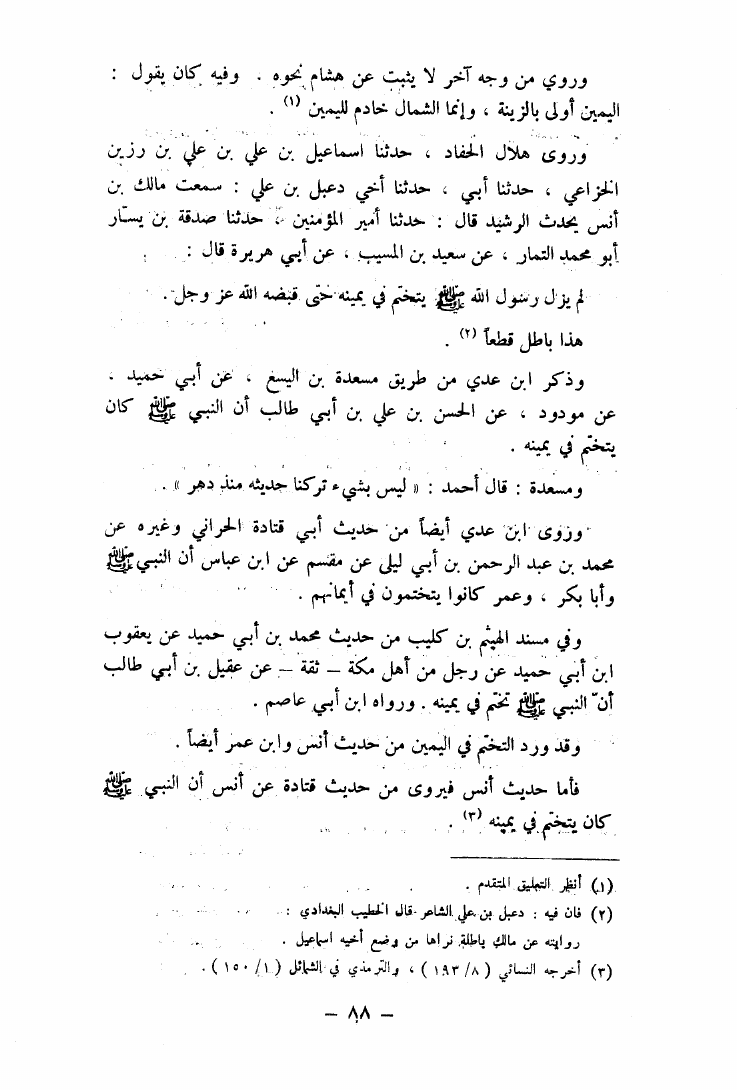 وروي من وجه آخر لا يثبت عن هشام نحوه . وفيه كان يقول :
اليمين أولى بالزينة ، وإنما الشمال خادم لليمين (١) .
وروى هلال الحفاد ، حدثنا اسماعيل بن علي بن علي بن رزين
الخزاعي ، حدثنا أبي ، حدثنا أخي دعبل بن علي : سمعت مالك بن
أنس يحدث الرشيد قال : حدثنا أمير المؤمنين ، حدثنا صدقة بن يسار
أبو محمد التمار ، عن سعيد بن المسيب ، عن أبي هريرة قال :
لم يزل رسول الله ﷺ يتختم في يمينه حتى قبضه الله عز وجل .
هذا باطل قطعاً (٢) .
وذكر ابن عدي من طريق مسعدة بن اليسع ، عن أبي حميد .
عن مودود ، عن الحسن بن علي بن أبي طالب أن النبي ﷺ كان
يتختم في يمينه .
ومسعدة : قال أحمد : « ليس بشيء تركنا حديثه منذ دهر » .
وروى ابن عدي أيضاً من حديث أبي قتادة الحراني وغيره عن
محمد بن عبد الرحمن بن أبي ليلى عن مقسم عن ابن عباس أن النبي ﷺ
وأبا بكر ، وعمر كانوا يتختمون في أيمانهم .
وفي مسند الهيثم بن كليب من حديث محمد بن أبي حميد عن يعقوب
ابن أبي حميد عن رجل من أهل مكة – ثقة – عن عقيل بن أبي طالب
أنّ النبي ﷺ تختم في يمينه . ورواه ابن أبي عاصم .
وقد ورد التختم في اليمين من حديث أنس وابن عمر أيضاً .
فأما حديث أنس فيروى من حديث قتادة عن أنس أن النبي ﷺ
كان يتختم في يمينه (٣) .
(١) أنظر التعليق المتقدم .
(٢) فان فيه : دعبل بن علي الشاعر قال الخطيب البغدادي :
روايته عن مالك باطلة نراها من وضع أخيه اسماعيل .
(٣) أخرجه النسائي ( ٨/ ١٩٣ ) ، والترمذي في الشمائل ( ١/ ١٥٠ ) .
– ٨٨ –